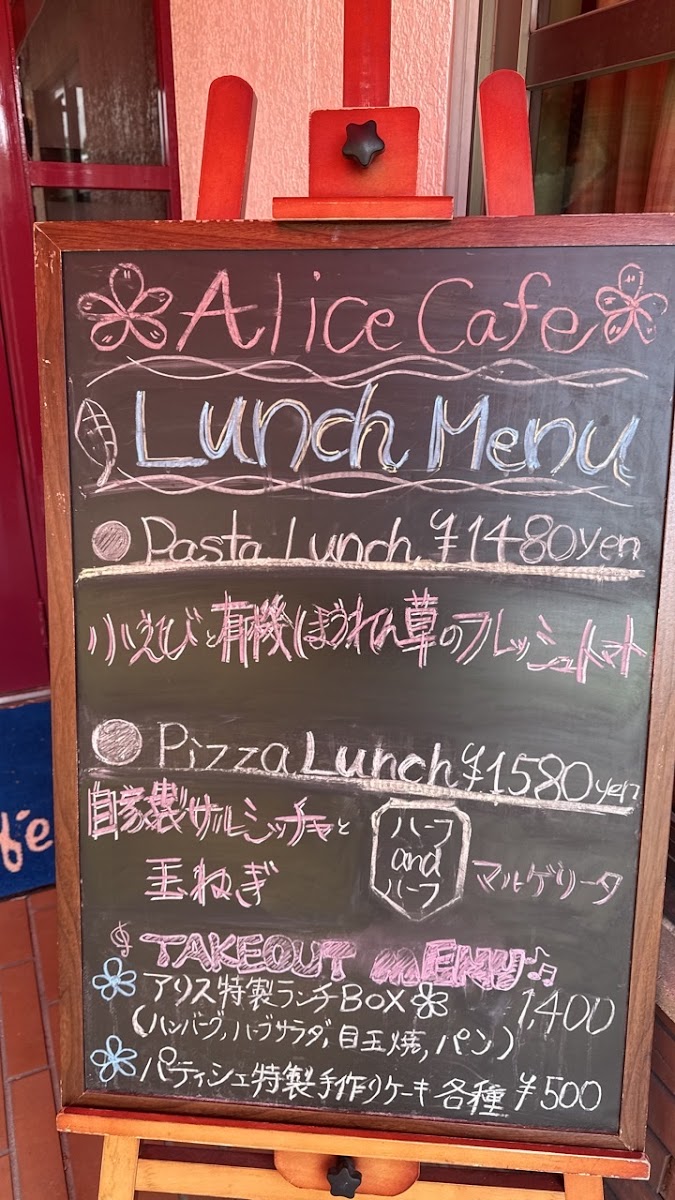 Alice Cafe
Lunch Menu
Pasta Lunch ¥1480yen
小えびと有機ほうれん草のフレッシュトマト
Pizza Lunch ¥1580yen
自家製サルシッチャと
玉ねぎ
ハーフ
and
ハーフ
マルゲリータ
TAKEOUT MENU
アリス特製ランチBOX 1,400
(ハンバーグ,ハーブサラダ,目玉焼,パン)
パティシェ特製手作りケーキ各種 ¥500